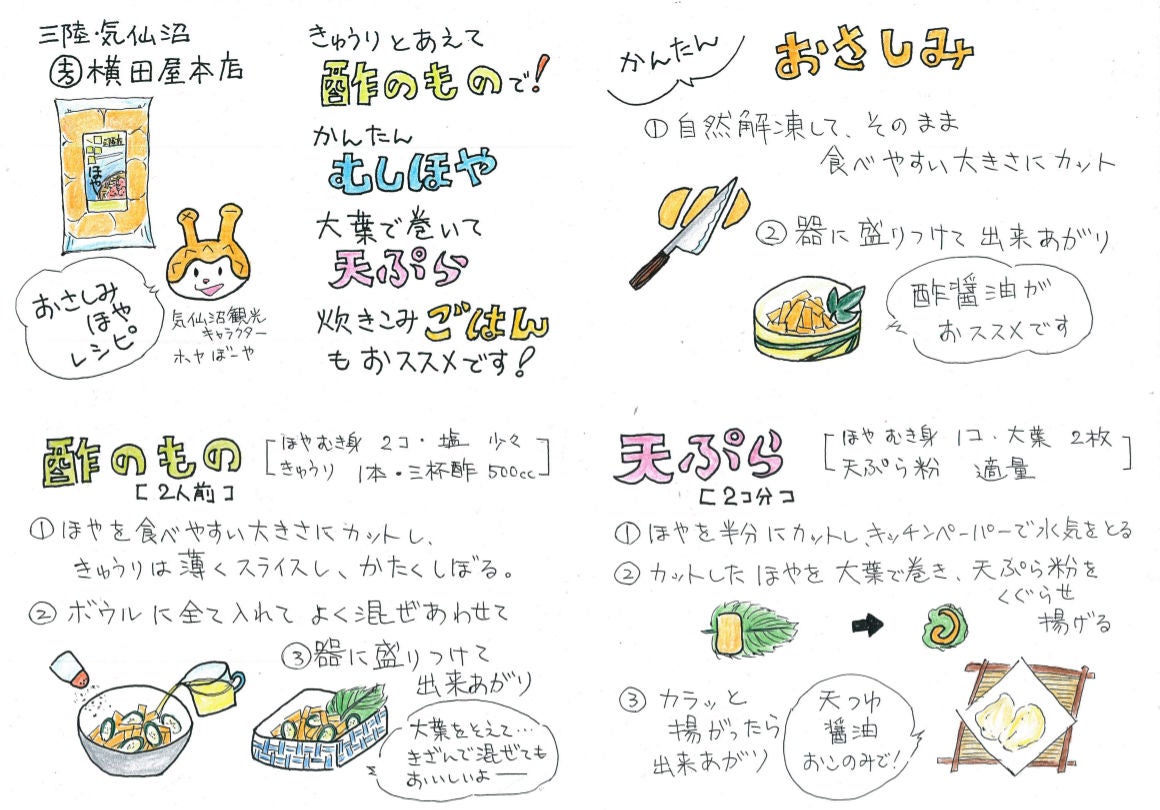 三陸・気仙沼
横田屋本店
ほや
おさしみ
ほや
レシピ。
気仙沼観光
キャラクター
ホヤぼーや
きゅうりとあえて
酢のもので!
かんたん
むしほや
大葉で巻いて
天ぷら
炊きこみごはん
もおススメです!
かんたん
おさしみ
①自然解凍して、そのまま
食べやすい大きさにカット
②器に盛りつけて出来あがり
酢醤油が
おススメです
酢のもの
[2人前]
ほやむき身 2コ・塩 少々
きゅうり 1本・三杯酢 500cc
①ほやを食べやすい大きさにカットし、
きゅうりは薄くスライスし、かたくしぼる。
②ボウルに全て入れてよく混ぜあわせて
③器に盛りつけて
出来あがり
大葉をそえて…
きざんで混ぜても
おいしいよー
天ぷら
[2コ分]
ほやむき身 1コ・大葉 2枚
天ぷら粉 適量
①ほやを半分にカットし、キッチンペーパーで水気をとる
②カットしたほやを大葉で巻き、天ぷら粉を
くぐらせ
揚げる
③カラッと
揚がったら
出来あがり
天つゆ
醤油
おこのみで!